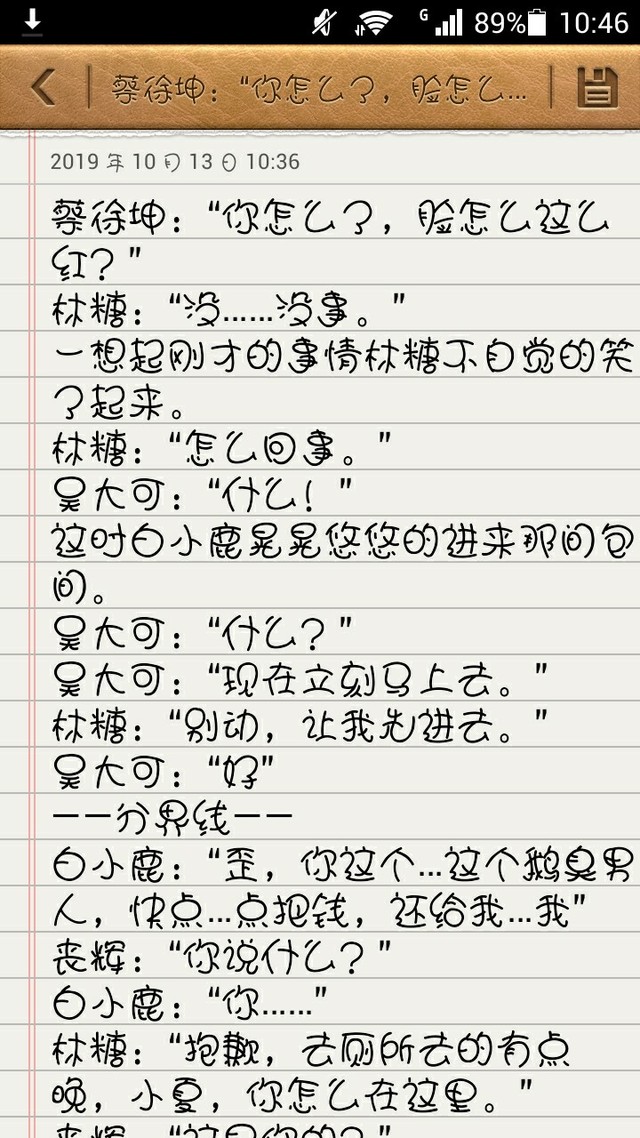 G 89% 10:46
蔡徐坤：“你怎么了，脸怎么...
2019 年 10 月 13 日 10:36
蔡徐坤：“你怎么了，脸怎么这么
红？”
林糖：“没……没事。”
一想起刚才的事情林糖不自觉的笑
了起来。
林糖：“怎么回事。”
吴大可：“什么！”
这时白小鹿晃晃悠悠的进来那间包
间。
吴大可：“什么？”
吴大可：“现在立刻马上去。”
林糖：“别动，让我先进去。”
吴大可：“好”
——分界线——
白小鹿：“歪，你这个...这个鹅臭男
人，快点...点把钱，还给我...我”
丧辉：“你说什么？”
白小鹿：“你……”
林糖：“抱歉，去厕所去的有点
晚，小夏，你怎么在这里。”
丧辉：“这是你的？”